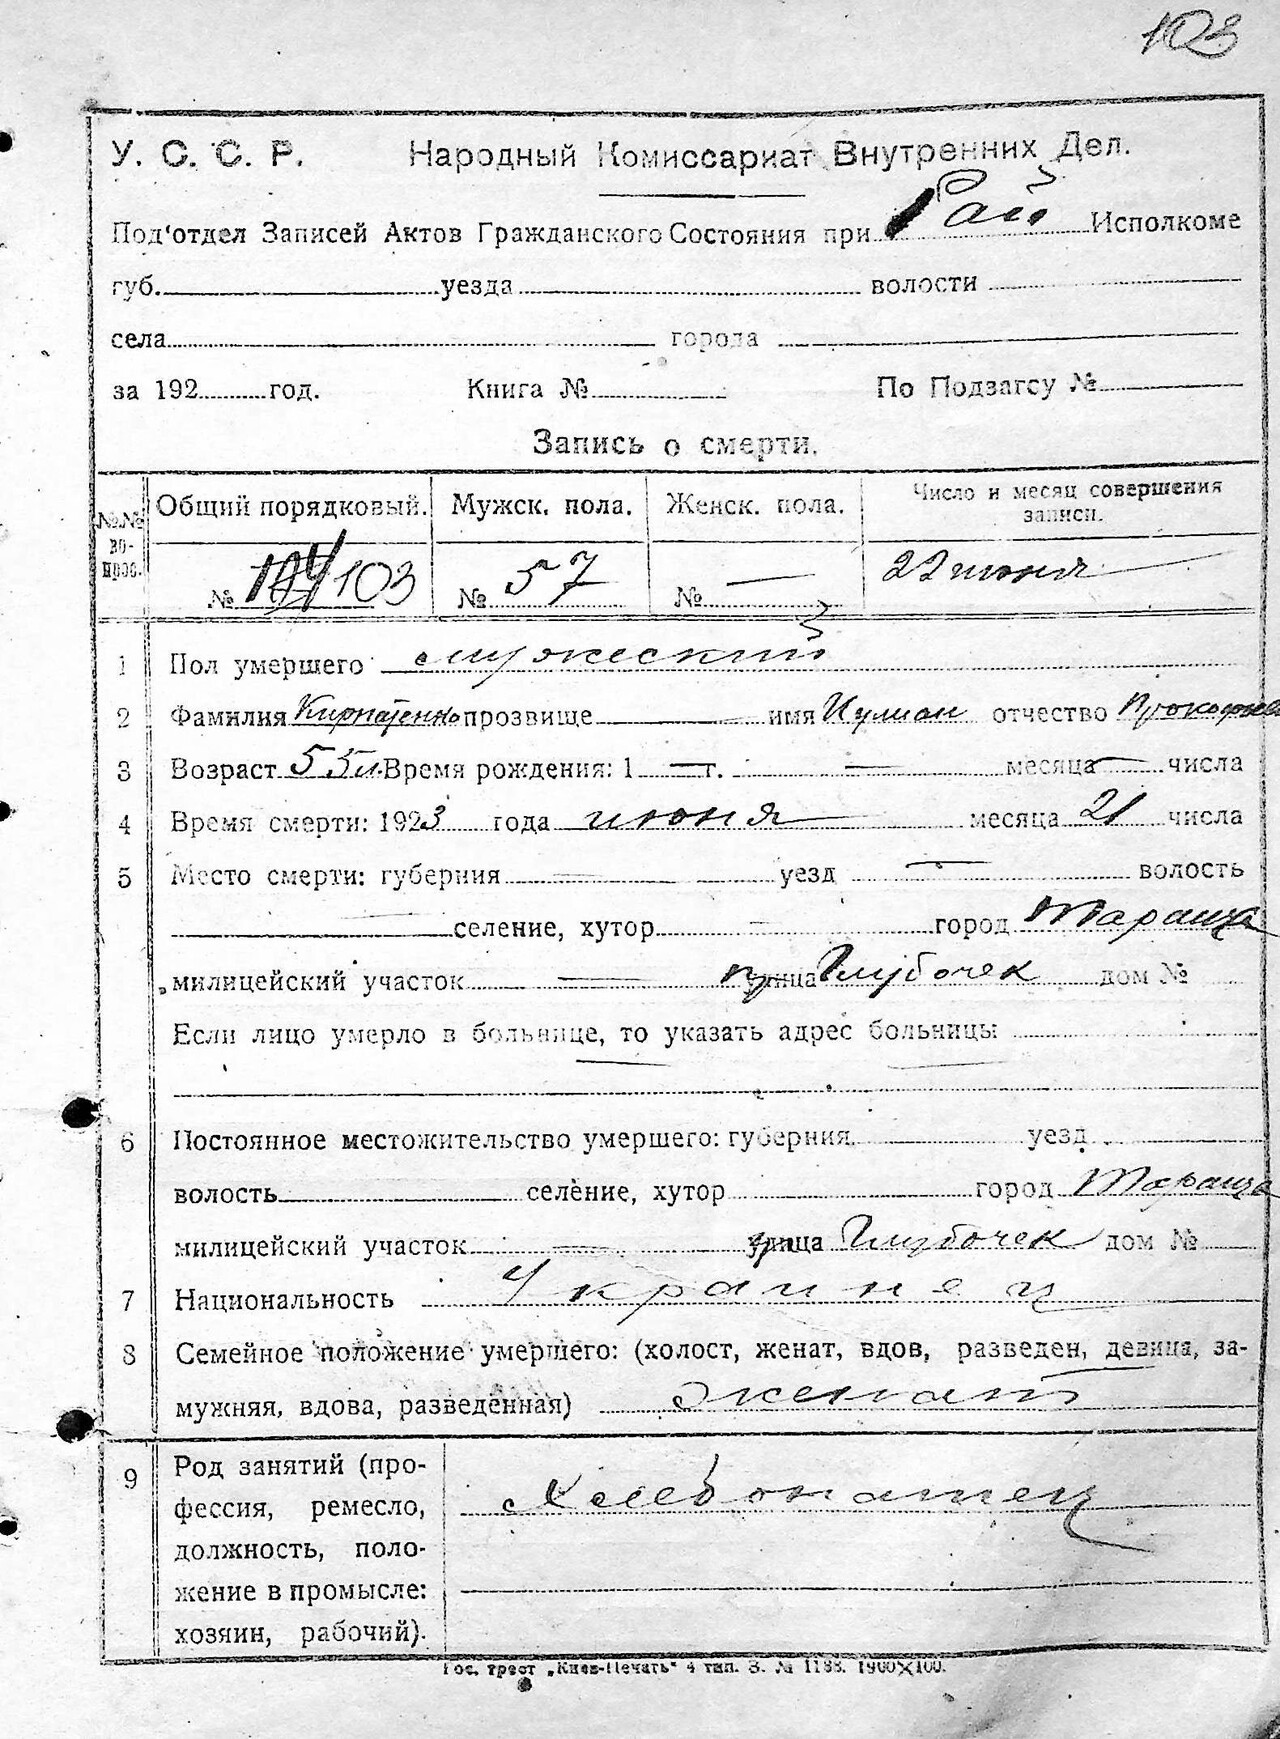 103
У. С. С. Р. Народный Комиссариат Внутренних Дел.
Под'отдел Записей Актов Гражданского Состояния при Рай Исполкоме
губ. уезда волости
села города
за 192 год. Книга № По Подзагсу №
Запись о смерти.
№№ вопрос. Общий порядковый. Мужск. пола. Женск. пола. Число и месяц совершения записи.
№ 104 103 № 57 № — 22 июня
1 Пол умершего мужеский
2 Фамилия прозвище — имя Иулиан отчество Прокофьев
3 Возраст 55 л. Время рождения: 1 — г. — месяца — числа
4 Время смерти: 1923 года июня месяца 21 числа
5 Место смерти: губерния — уезд — волость
— селение, хутор — город Тараща
милицейский участок — улица Глубочек дом №
Если лицо умерло в больнице, то указать адрес больницы
— —
6 Постоянное местожительство умершего: губерния уезд
волость селение, хутор город Тараща
милицейский участок — улица Глубочек дом №
7 Национальность Украинец
8 Семейное положение умершего: (холост, женат, вдов, разведен, девица, за-
мужняя, вдова, разведенная) женат
9 Род занятий (про-
фессия, ремесло,
должность, поло-
жение в промысле:
хозяин, рабочий).
Хлебопашец
Гос. трест „Киев-Печать" 4 тип. З. № 1188. 1900×100.